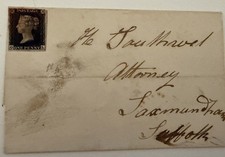 POSTAGE
ONE PENNY
Southwel
Attorney
Saxmundham
Suffolk